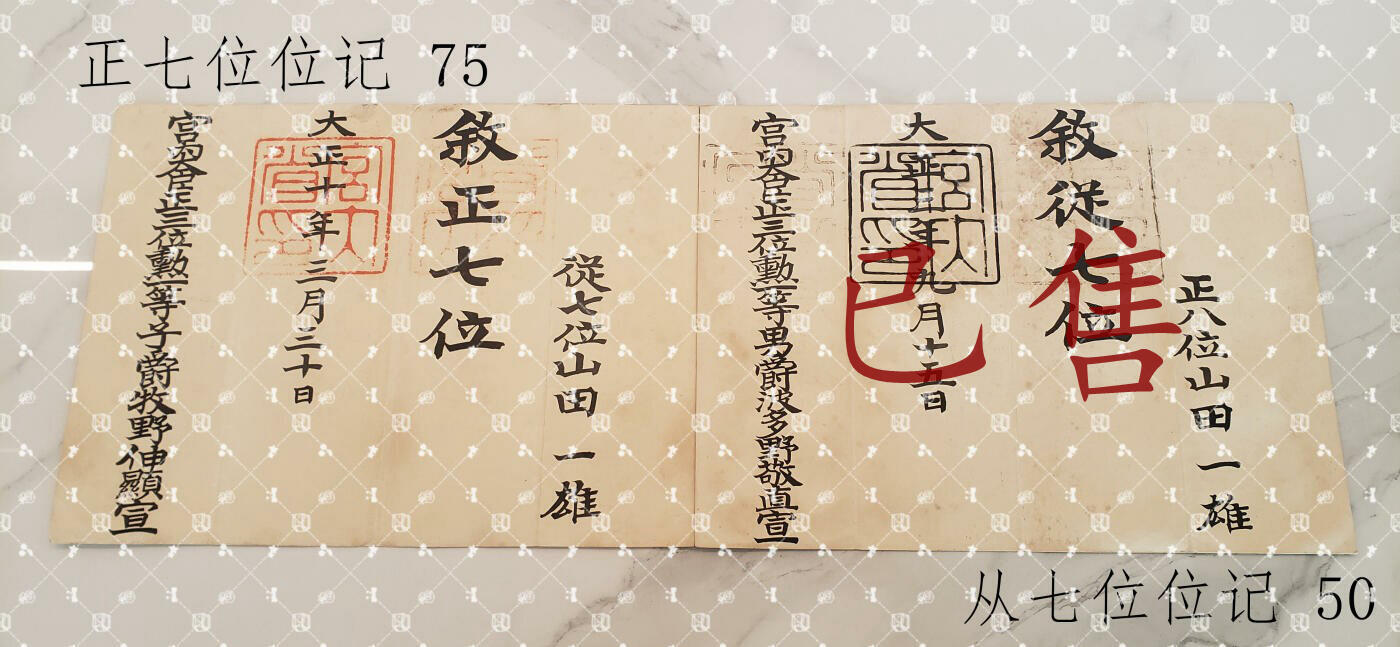 正七位位记 75
正八位山田一雄
敘從七位
大正 年九月十五日
宮内省印
宮内大臣正三位勳一等男爵波多野敬直宣
已售
從七位山田一雄
敘正七位
大正十年三月三十日
宮内省印
宮内大臣正三位勳一等子爵牧野伸顯宣
从七位位记 50